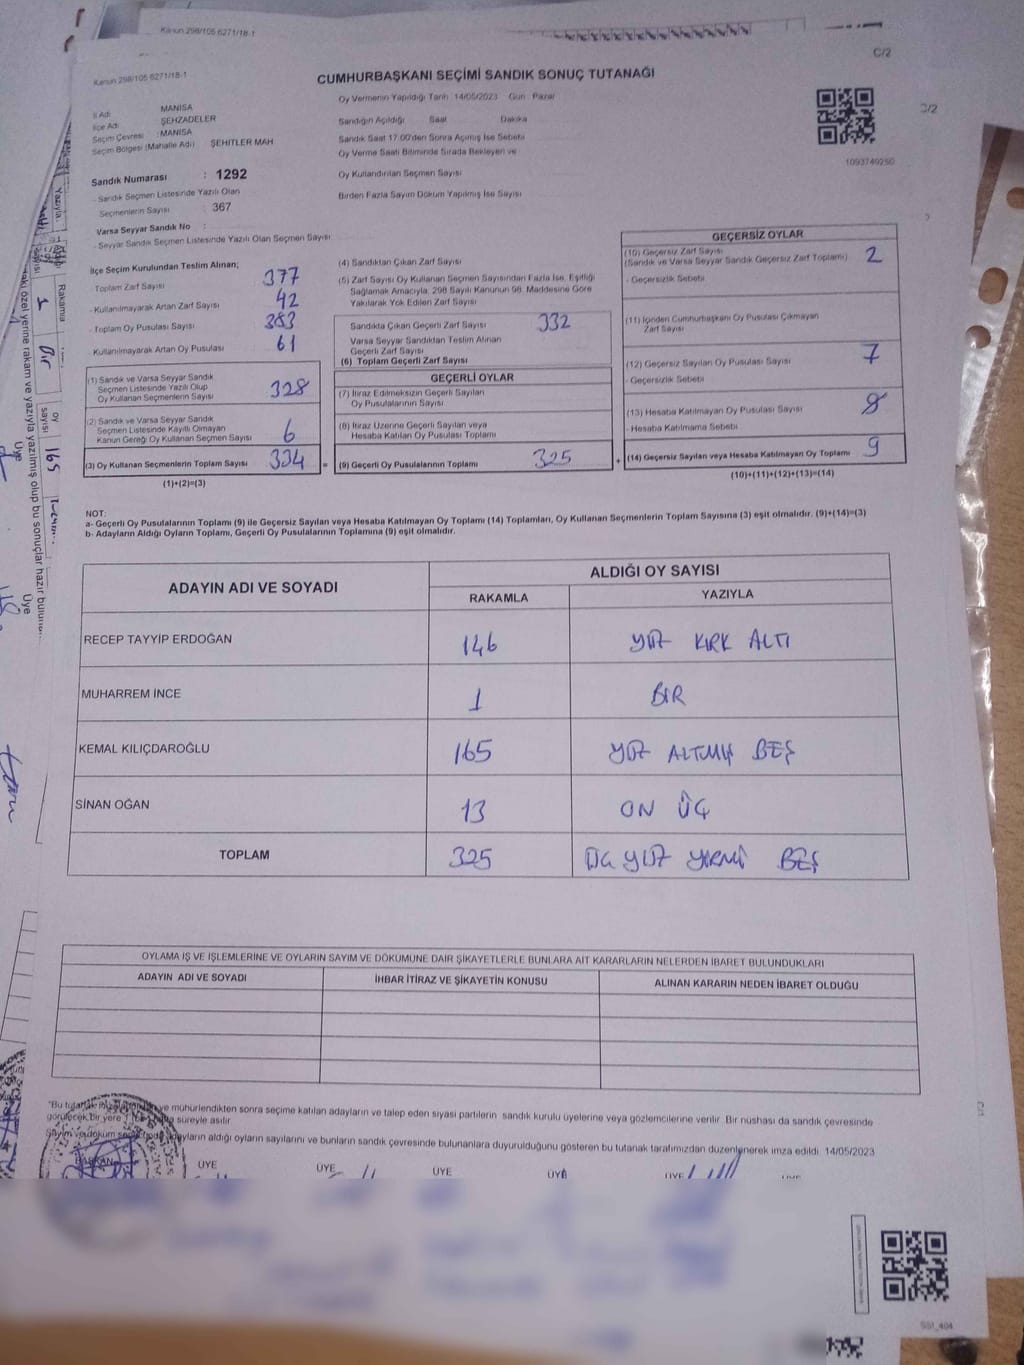 Kanun 298/105 6271/18-1
Kanun 298/105 6271/18-1
C/2
CUMHURBAŞKANI SEÇİMİ SANDIK SONUÇ TUTANAĞI
İl Adı MANİSA
İlçe Adı ŞEHZADELER
Seçim Çevresi : MANİSA
Seçim Bölgesi (Mahalle Adı) ŞEHİTLER MAH
Sandık Numarası : 1292
- Sandık Seçmen Listesinde Yazılı Olan
Seçmenlerin Sayısı : 367
Varsa Seyyar Sandık No :
- Seyyar Sandık Seçmen Listesinde Yazılı Olan Seçmen Sayısı
Oy Vermenin Yapıldığı Tarih 14/05/2023 Gün Pazar
Sandığın Açıldığı Saat Dakika
Sandık Saat 17.00'den Sonra Açılmış İse Sebebi
Oy Verme Saati Bitiminde Sırada Bekleyen ve
Oy Kullandırılan Seçmen Sayısı
Birden Fazla Sayım Döküm Yapılmış İse Sayısı
1093749250
C/2
İlçe Seçim Kurulundan Teslim Alınan;
- Toplam Zarf Sayısı 377
- Kullanılmayarak Artan Zarf Sayısı 42
- Toplam Oy Pusulası Sayısı 383
- Kullanılmayarak Artan Oy Pusulası 61
(1) Sandık ve Varsa Seyyar Sandık
Seçmen Listesinde Yazılı Olup
Oy Kullanan Seçmenlerin Sayısı 328
(2) Sandık ve Varsa Seyyar Sandık
Seçmen Listesinde Kayıtlı Olmayan
Kanun Gereği Oy Kullanan Seçmen Sayısı 6
(3) Oy Kullanan Seçmenlerin Toplam Sayısı 334 =
(1)+(2)=(3)
(4) Sandıktan Çıkan Zarf Sayısı
(5) Zarf Sayısı Oy Kullanan Seçmen Sayısından Fazla İse, Eşitliği
Sağlamak Amacıyla, 298 Sayılı Kanunun 98. Maddesine Göre
Yakılarak Yok Edilen Zarf Sayısı
Sandıkta Çıkan Geçerli Zarf Sayısı 332
Varsa Seyyar Sandıktan Teslim Alınan
Geçerli Zarf Sayısı
(6) Toplam Geçerli Zarf Sayısı
GEÇERLİ OYLAR
(7) İtiraz Edilmeksizin Geçerli Sayılan
Oy Pusulalarının Sayısı
(8) İtiraz Üzerine Geçerli Sayılan veya
Hesaba Katılan Oy Pusulası Toplamı
(9) Geçerli Oy Pusulalarının Toplamı 325 +
GEÇERSİZ OYLAR
(10) Geçersiz Zarf Sayısı
(Sandık ve Varsa Seyyar Sandık Geçersiz Zarf Toplamı) 2
- Geçersizlik Sebebi
(11) İçinden Cumhurbaşkanı Oy Pusulası Çıkmayan
Zarf Sayısı
(12) Geçersiz Sayılan Oy Pusulası Sayısı 7
- Geçersizlik Sebebi
(13) Hesaba Katılmayan Oy Pusulası Sayısı
- Hesaba Katılmama Sebebi
(14) Geçersiz Sayılan veya Hesaba Katılmayan Oy Toplamı 9
(10)+(11)+(12)+(13)=(14)
NOT:
a- Geçerli Oy Pusulalarının Toplamı (9) ile Geçersiz Sayılan veya Hesaba Katılmayan Oy Toplamı (14) Toplamları, Oy Kullanan Seçmenlerin Toplam Sayısına (3) eşit olmalıdır. (9)+(14)=(3)
b- Adayların Aldığı Oyların Toplamı, Geçerli Oy Pusulalarının Toplamına (9) eşit olmalıdır.
ADAYIN ADI VE SOYADI ALDIĞI OY SAYISI
RAKAMLA YAZIYLA
RECEP TAYYİP ERDOĞAN 146 YÜZ KIRK ALTI
MUHARREM İNCE 1 BİR
KEMAL KILIÇDAROĞLU 165 YÜZ ALTMIŞ BEŞ
SİNAN OĞAN 13 ON ÜÇ
TOPLAM 325 ÜÇ YÜZ YİRMİ BEŞ
OYLAMA İŞ VE İŞLEMLERİNE VE OYLARIN SAYIM VE DÖKÜMÜNE DAİR ŞİKAYETLERLE BUNLARA AİT KARARLARIN NELERDEN İBARET BULUNDUKLARI
ADAYIN ADI VE SOYADI İHBAR İTİRAZ VE ŞİKAYETİN KONUSU ALINAN KARARIN NEDEN İBARET OLDUĞU
"Bu ve mühürlendikten sonra seçime katılan adayların ve talep eden siyasi partilerin sandık kurulu üyelerine veya gözlemcilerine verilir. Bir nüshası da sandık çevresinde
görülecek bir yere süreyle asılır.
Sayım ve döküm adayların aldığı oyların sayılarını ve bunların sandık çevresinde bulunanlara duyurulduğunu gösteren bu tutanak tarafımızdan düzenlenerek imza edildi. 14/05/2023
BAŞKAN ÜYE ÜYE ÜYE ÜYE ÜYE
SS1_404
Yazıyla
Rakamla
1
Bir
oy
sayısı
165
özel yerine rakam ve yazıyla yazılmış olup bu sonuçlar hazır
Üye
Üye